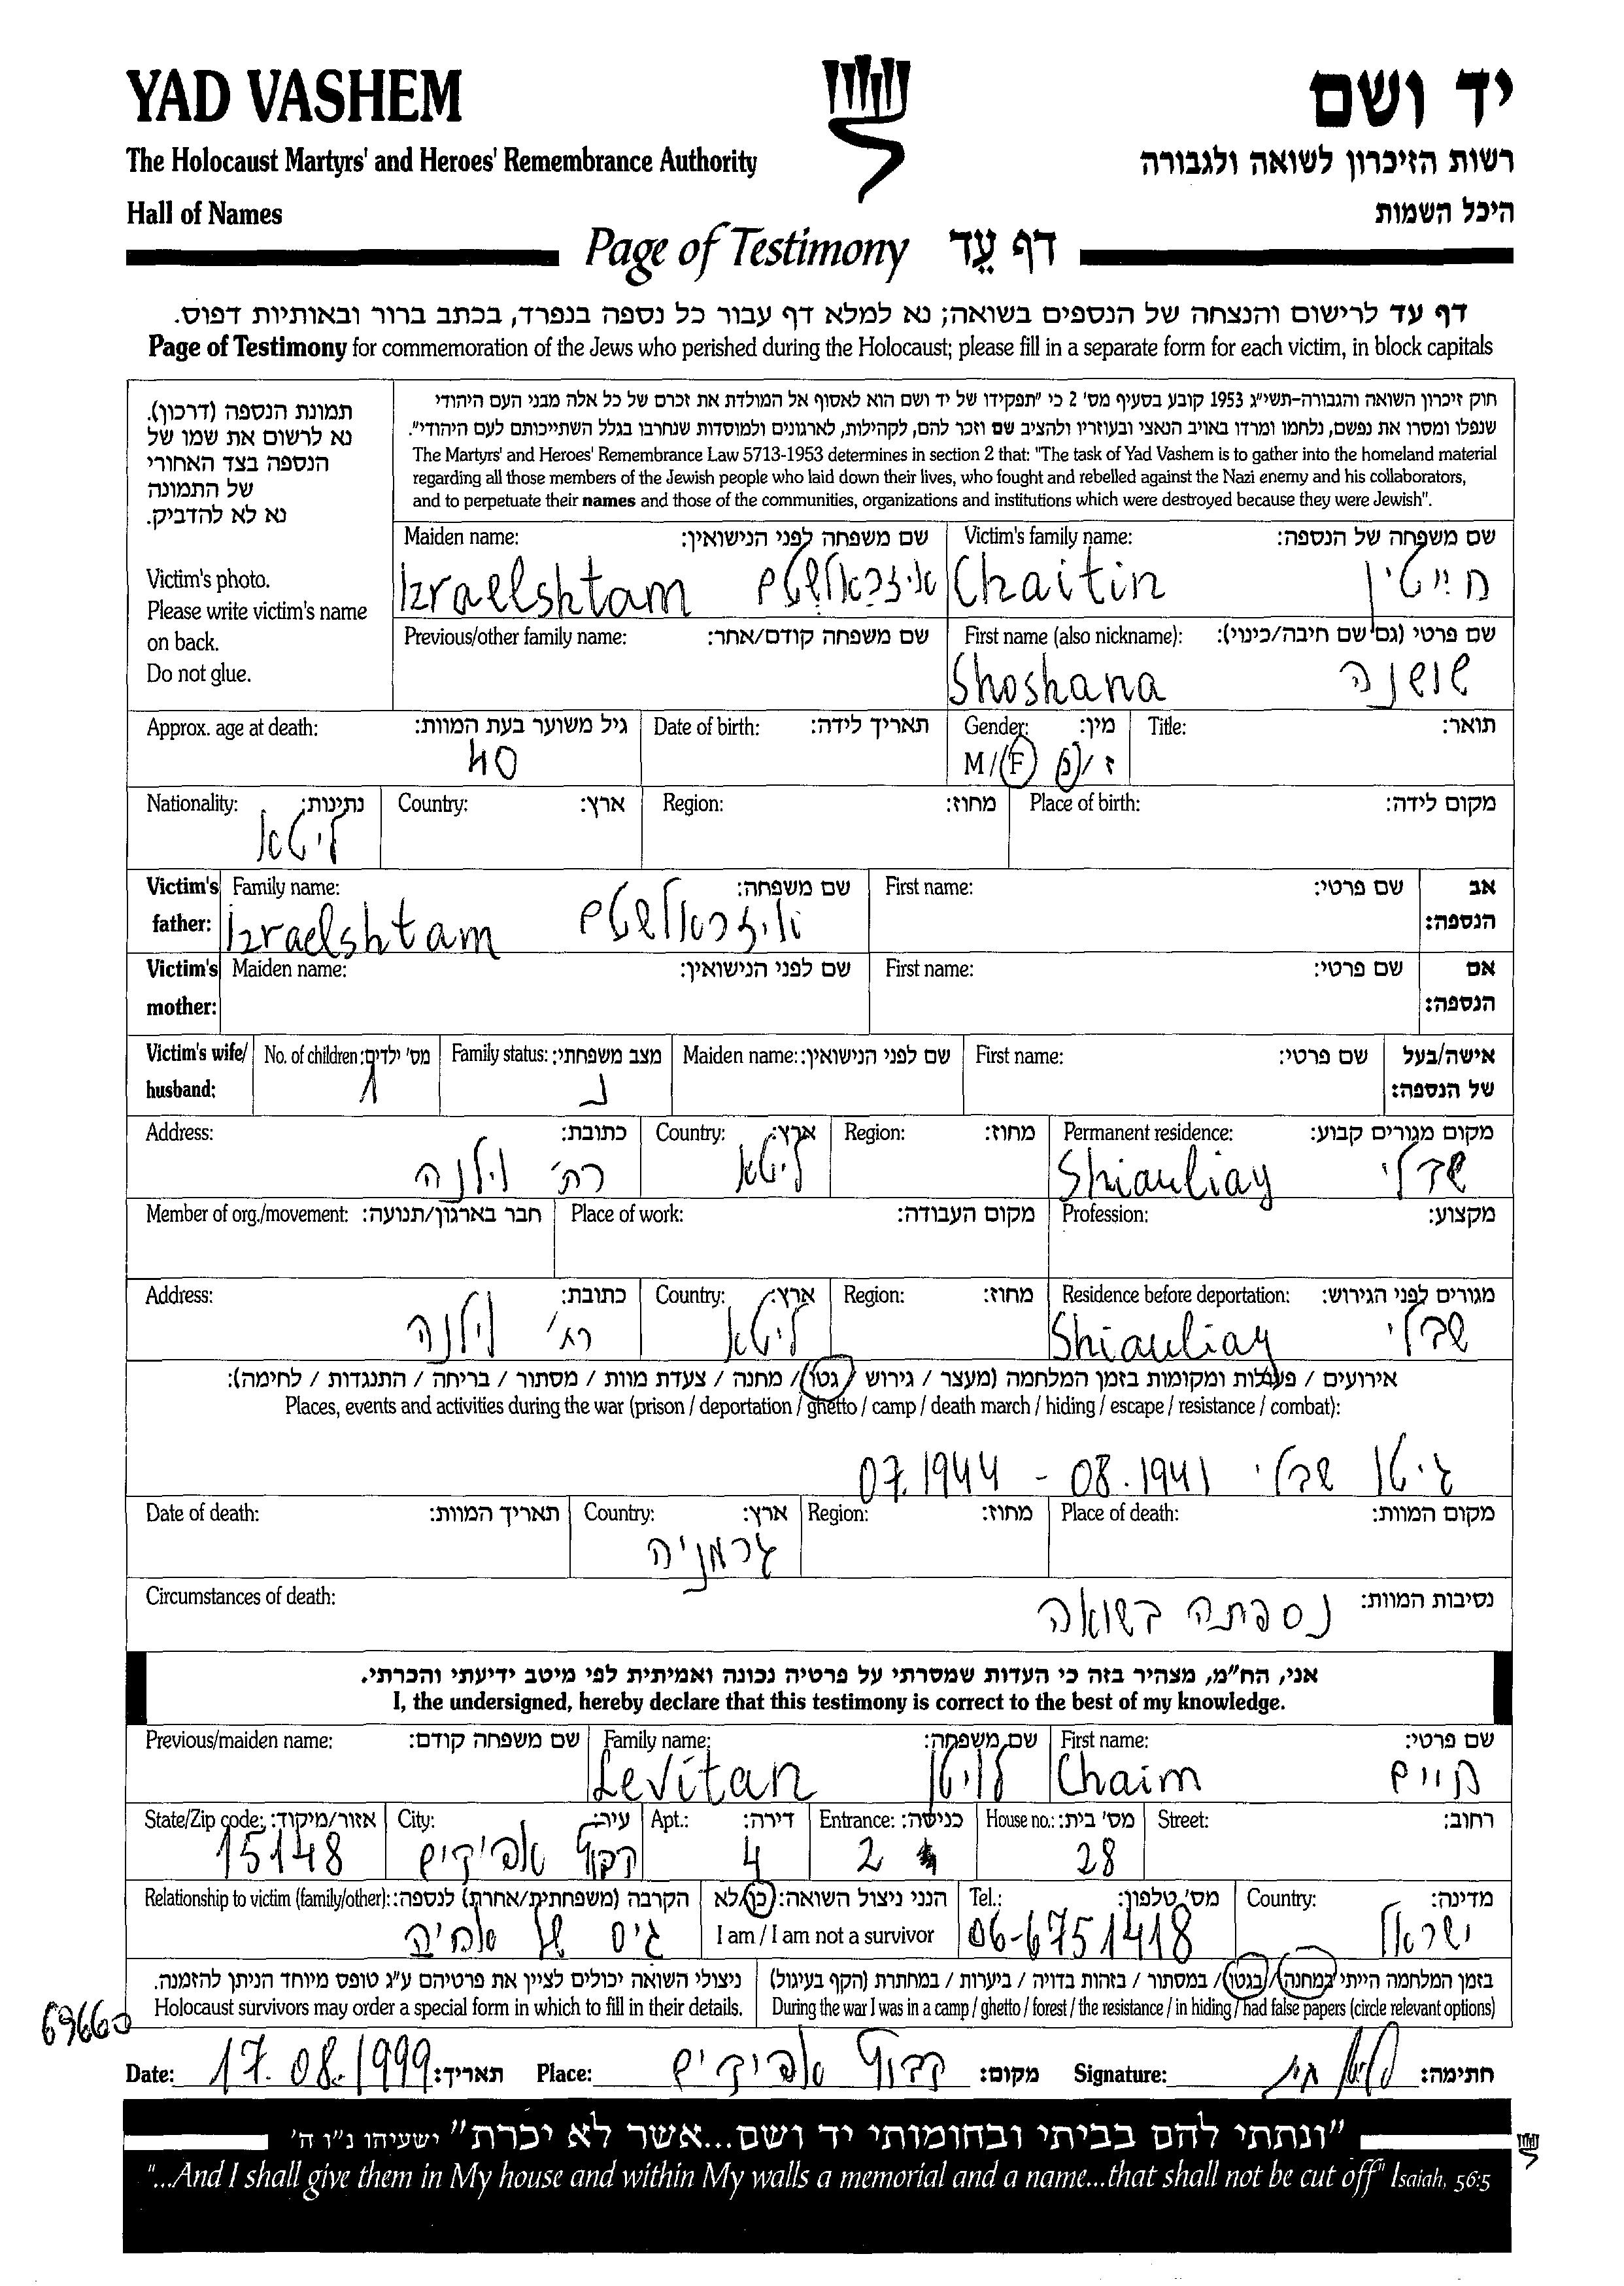 YAD VASHEM
יד ושם
The Holocaust Martyrs' and Heroes' Remembrance Authority
רשות הזיכרון לשואה ולגבורה
Hall of Names
היכל השמות
Page of Testimony דף עֵד
דף עד לרישום והנצחה של הנספים בשואה; נא למלא דף עבור כל נספה בנפרד, בכתב ברור ובאותיות דפוס.
Page of Testimony for commemoration of the Jews who perished during the Holocaust; please fill in a separate form for each victim, in block capitals
תמונת הנספה (דרכון).
נא לרשום את שמו של
הנספה בצד האחורי
של התמונה
נא לא להדביק.
Victim's photo.
Please write victim's name
on back.
Do not glue.
חוק זיכרון השואה והגבורה-תשי"ג 1953 קובע בסעיף מס' 2 כי "תפקידו של יד ושם הוא לאסוף אל המולדת את זכרם של כל אלה מבני העם היהודי
שנפלו ומסרו את נפשם, נלחמו ומרדו באויב הנאצי ובעוזריו ולהציב שם וזכר להם, לקהילות, לארגונים ולמוסדות שנחרבו בגלל השתייכותם לעם היהודי".
The Martyrs' and Heroes' Remembrance Law 5713-1953 determines in section 2 that: "The task of Yad Vashem is to gather into the homeland material
regarding all those members of the Jewish people who laid down their lives, who fought and rebelled against the Nazi enemy and his collaborators,
and to perpetuate their names and those of the communities, organizations and institutions which were destroyed because they were Jewish".
Maiden name: שם משפחה לפני הנישואין: Victim's family name: שם משפחה של הנספה:
Izraelshtam איזראלשטם Chaitin חייטין
Previous/other family name: שם משפחה קודם/אחר: First name (also nickname): שם פרטי (גם שם חיבה/כינוי):
Shoshana שושנה
Approx. age at death: גיל משוער בעת המוות: Date of birth: תאריך לידה: Gender: מין: Title: תואר:
40 M / F ז / נ
Nationality: נתינות: Country: ארץ: Region: מחוז: Place of birth: מקום לידה:
ליטא
Victim's father: Family name: שם משפחה: First name: שם פרטי: אב הנספה:
Izraelshtam איזראלשטם
Victim's mother: Maiden name: שם לפני הנישואין: First name: שם פרטי: אם הנספה:
Victim's wife/ husband: No. of children: מס' ילדים: Family status: מצב משפחתי: Maiden name: שם לפני הנישואין: First name: שם פרטי: אישה/בעל של הנספה:
1 נ
Address: כתובת: Country: ארץ: Region: מחוז: Permanent residence: מקום מגורים קבוע:
רח' וילנה ליטא Shiauliay שבלי
Member of org./movement: חבר בארגון/תנועה: Place of work: מקום העבודה: Profession: מקצוע:
Address: כתובת: Country: ארץ: Region: מחוז: Residence before deportation: מגורים לפני הגירוש:
רח' וילנה ליטא Shiauliay שבלי
אירועים / פעולות ומקומות בזמן המלחמה (מעצר / גירוש / גטו / מחנה / צעדת מוות / מסתור / בריחה / התנגדות / לחימה):
Places, events and activities during the war (prison / deportation / ghetto / camp / death march / hiding / escape / resistance / combat):
גיטו שבלי 08.1941 - 07.1944
Date of death: תאריך המוות: Country: ארץ: Region: מחוז: Place of death: מקום המוות:
גרמניה
Circumstances of death: נסיבות המוות:
נספתה בשואה
אני, הח"מ, מצהיר בזה כי העדות שמסרתי על פרטיה נכונה ואמיתית לפי מיטב ידיעתי והכרתי.
I, the undersigned, hereby declare that this testimony is correct to the best of my knowledge.
Previous/maiden name: שם משפחה קודם: Family name: שם משפחה: First name: שם פרטי:
Levitan לויטן Chaim חיים
State/Zip code: אזור/מיקוד: City: עיר: Apt.: דירה: Entrance: כניסה: House no.: מס' בית: Street: רחוב:
15148 אפיקים 4 2 28
Relationship to victim (family/other): הקרבה (משפחתית/אחרת) לנספה: הנני ניצול השואה: כן/לא Tel.: מס' טלפון: Country: מדינה:
גיס של אחיה I am / I am not a survivor 06-6751418 ישראל
ניצולי השואה יכולים לציין את פרטיהם ע"ג טופס מיוחד הניתן להזמנה. בזמן המלחמה הייתי במחנה / בגטו / במסתור / בזהות בדויה / ביערות / במחתרת (הקף בעיגול)
Holocaust survivors may order a special form in which to fill in their details. During the war I was in a camp / ghetto / forest / the resistance / in hiding / had false papers (circle relevant options)
69660
Date: 17.08.1999 תאריך: Place: אפיקים מקום: Signature: חתימה:
"ונתתי להם בביתי ובחומותי יד ושם...אשר לא יכרת" ישעיהו נ"ו ה'
"...And I shall give them in My house and within My walls a memorial and a name...that shall not be cut off" Isaiah, 56:5